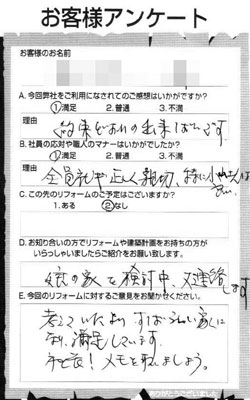 お客様アンケート
お客様のお名前
A. 今回弊社をご利用になされてのご感想はいかがですか?
①満足 2. 普通 3. 不満
理由
約束どおりの出来ばえです
B. 社員の応対や職人のマナーはいかがでしたか?
①満足 2. 普通 3. 不満
理由
全員礼儀正しく親切、特に小
良い
C. この先のリフォームのご予定はございますか?
1. ある ②なし
D. お知り合いの方でリフォームや建築計画をお持ちの方が
いらっしゃいましたらご紹介をお願い致します。
娘の家を検討中、又連絡
します
E. 今回のリフォームに対するご意見をお聞かせください。
考えていたより すばらしい家に
なり、満足しています。
社長!メモを取りましょう。
ありがとうございました